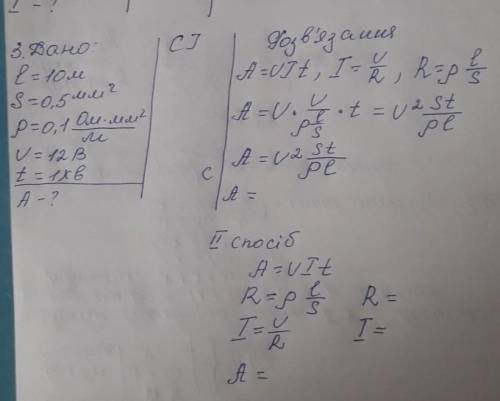 I - ?
3. Дано:
l = 10 м
S = 0,5 мм²
ρ = 0,1 Ом·мм²/м
U = 12 В
t = 1 хв
A - ?
СІ
с
Розв'язання
A = UIt, I = U/R, R = ρ l/S
A = U · U/(ρ l/S) · t = U² St/ρl
A = U² St/ρl
A =
II спосіб
A = UIt
R = ρ l/S R =
I = U/R I =
A =